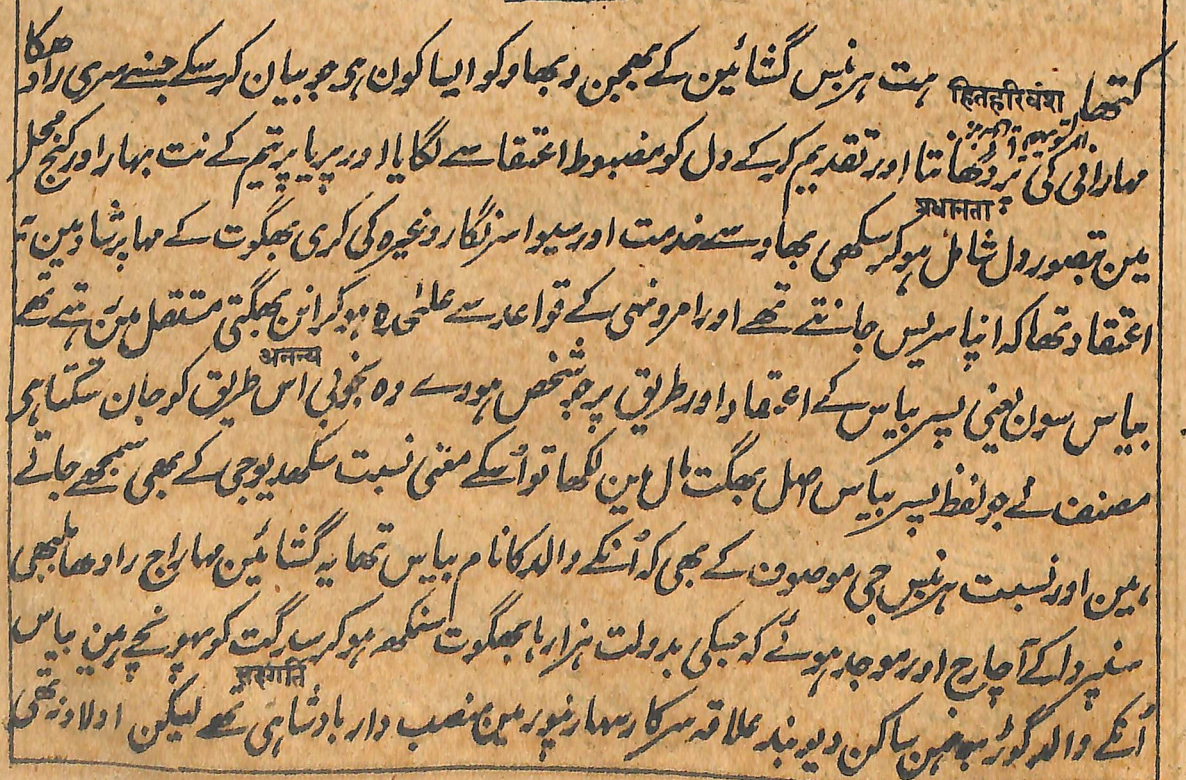 کتھا ہت ہربنس گشائین کے بھجن و بھاو کو ایسا کون ہی جو بیان کر سکے جسنے سری رادھکا
हितहरिवंश
مہارانی کی پردھانتا اور تقدیم کرکے دل کو مضبوط اعتقاد سے لگایا اور پریا پریتم کے نت بہار اور کنج محل
प्रधानता
مین بتصور دل شامل ہوکر سکھی بھاو سے خدمت اور سیوا سرنگار وغیرہ کی کری بھگوت کے مہاپرشاد مین
اعتقاد تھا کہ اپنا سربس جانتے تھے اور امر و نہی کے قواعد سے علٰحدہ ہوکر انن بھگتی مستقل مین رہتے تھے
अनन्य
بیاس سون یعنی پسر بیاس کے اعتقاد اور طریق پر جو شخص ہووے وہ بخوبی اس طریق کو جان سکتا ہی
مصنف نے جو لفظ پسر بیاس اصل بھگت مال مین لکھا تو اُسکے معنی نسبت سکھدیوجی کے بھی سمجھے جاتے
ہین اور نسبت ہربنس جی موصوف کے بھی کہ اُنکے والد کا نام بیاس تھا یہ گشائین مہاراج رادھابلبھی
سنپردا کے آچارج اور موجد ہوئے کہ جسکی بدولت ہزارہا بھگوت سنمکھ ہوکر سدگت کو پہونچے ہین بیاس
सद्गति
اُنکے والد گوڑ برہمن ساکن دیوبند علاقہ سرکار سہارنپور مین منصب دار بادشاہی تھے لیکن اولاد نہ تھی